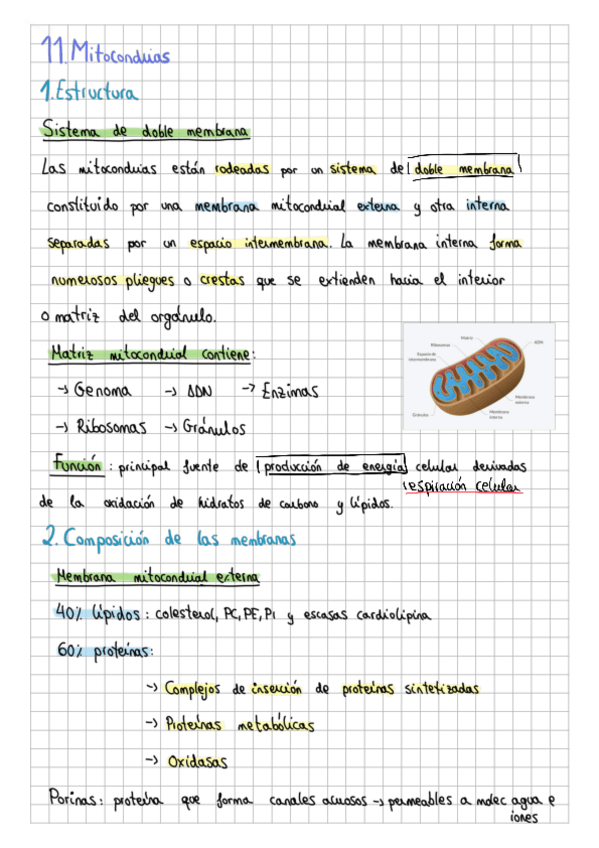 11. Mitocondrias
1. Estructura
Sistema de doble membrana
Las mitocondrias están rodeadas por un sistema de doble membrana
constituido por una membrana mitocondrial externa y otra interna
separadas por un espacio intermembrana. La membrana interna forma
numerosos pliegues o crestas que se extienden hacia el interior
o matriz del orgánulo.
Matriz mitocondrial contiene:
→ Genoma → ADN → Enzimas
→ Ribosomas → Gránulos
Matriz
Ribosomas
ADN
Espacio de
intermembrana
Membrana
externa
Membrana
interna
Gránulos
Función: principal fuente de producción de energía celular derivadas
respiración celular
de la oxidación de hidratos de carbono y lípidos.
2. Composición de las membranas
Membrana mitocondrial externa
40% lípidos: colesterol, PC, PE, PI y escasas cardiolipina
60% proteínas:
→ Complejos de inserción de proteínas sintetizadas
→ Proteínas metabólicas
→ Oxidasas
Porinas: proteína que forma canales acuosos → permeables a molec agua e
iones